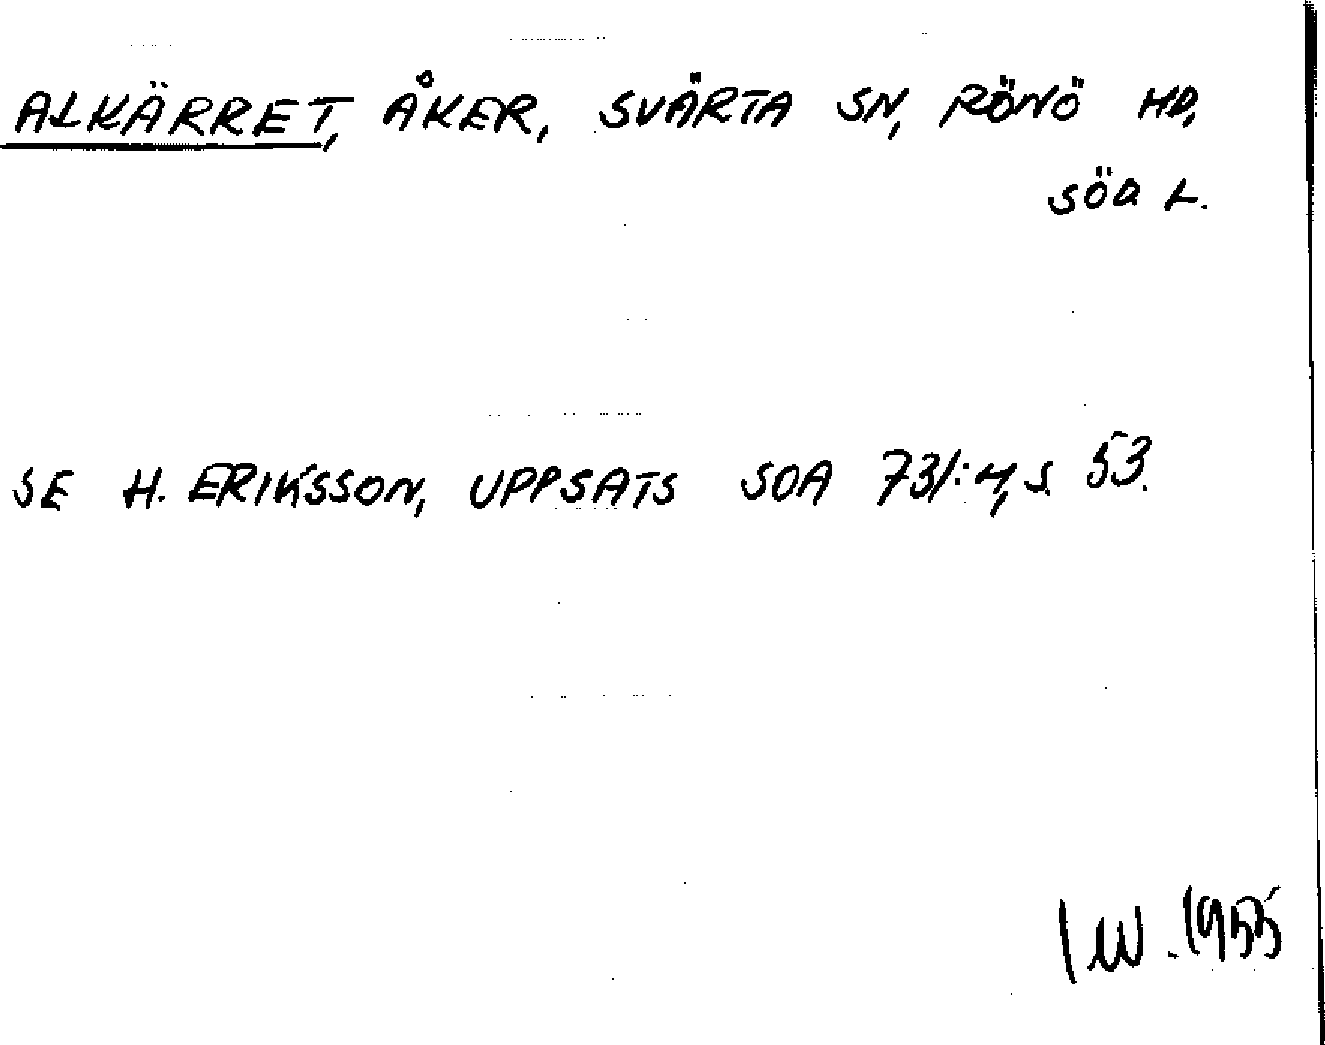 ALKÄRRET, ÅKER, SVÄRTA SN, RÖNÖ HD,
SÖD L.
SE H. ERIKSSON, UPPSATS SOA 731:4, S. 53.
IW. 1955